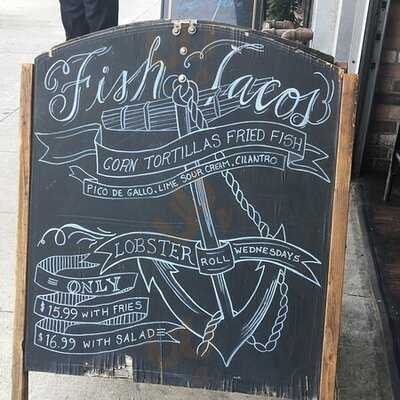 Fish Tacos
CORN TORTILLAS FRIED FISH
PICO DE GALLO, LIME SOUR CREAM, CILANTRO
LOBSTER ROLL WEDNESDAYS
ONLY
$15.99 WITH FRIES
$16.99 WITH SALAD